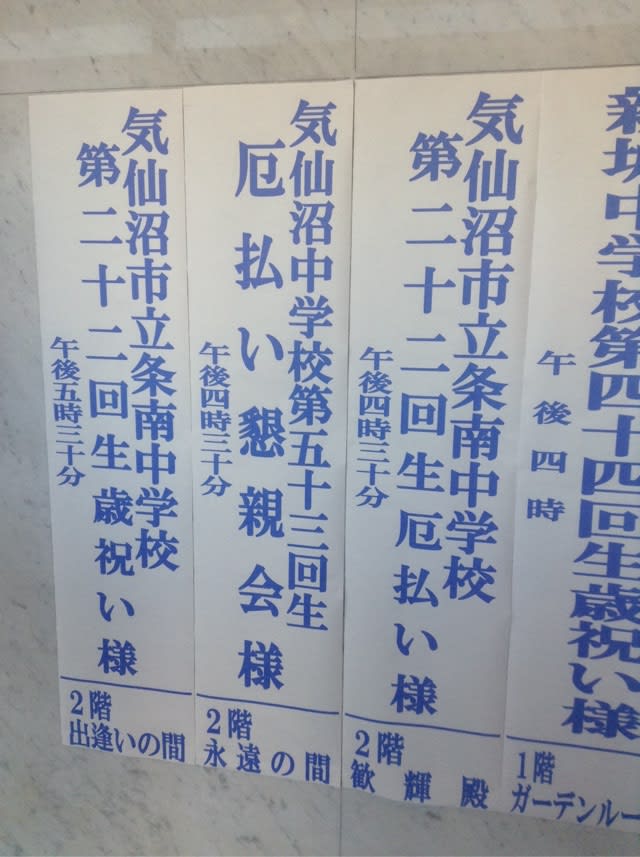 新城中学校第四十四回生歳祝い様
午後四時
1階
ガーデンルー
気仙沼市立条南中学校
第二十二回生厄払い様
午後四時三十分
2階
歓輝殿
気仙沼中学校第五十三回生
厄払い懇親会様
午後四時三十分
2階
永遠の間
気仙沼市立条南中学校
第二十二回生歳祝い様
午後五時三十分
2階
出逢いの間